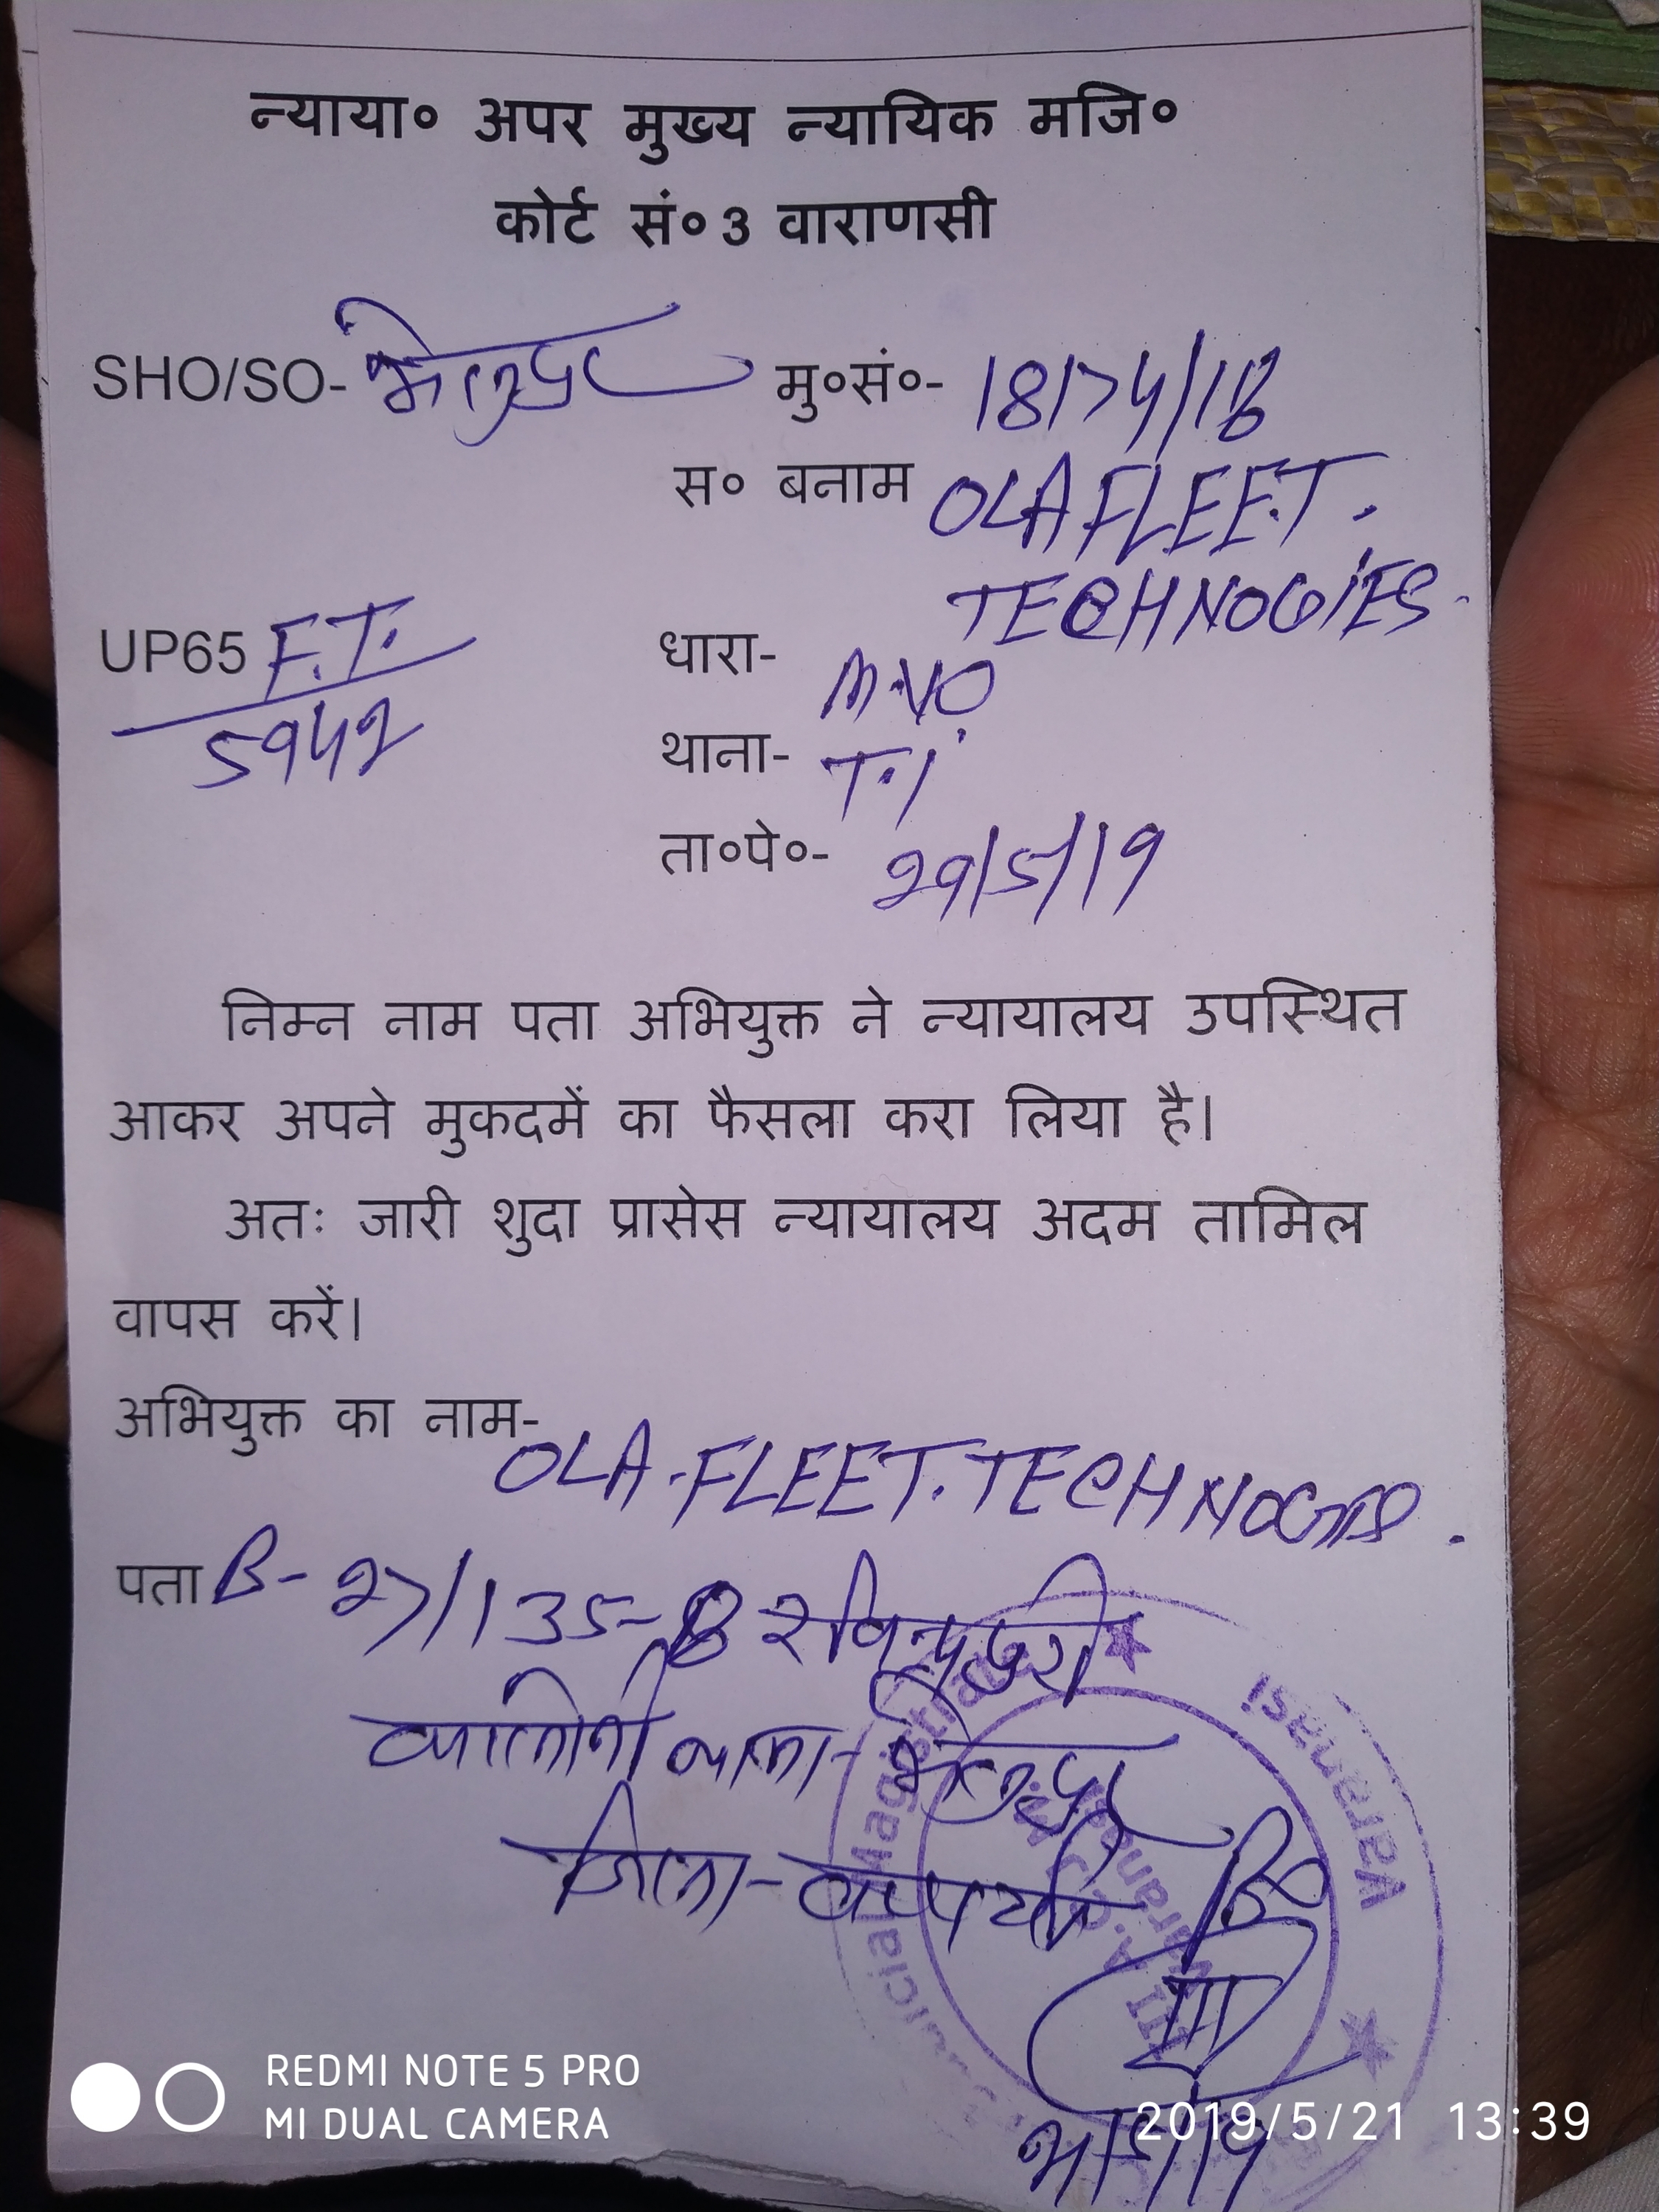 न्याया० अपर मुख्य न्यायिक मजि०
कोर्ट सं०3 वाराणसी
SHO/SO- मु०सं०- 18174/18
स० बनाम OLA FLEET.
TECHNOGIES
UP65 F.T.
5942
धारा- M.V.
थाना- T.I
ता०पे०- 29/5/19
निम्न नाम पता अभियुक्त ने न्यायालय उपस्थित
आकर अपने मुकदमें का फैसला करा लिया है।
अतः जारी शुदा प्रासेस न्यायालय अदम तामिल
वापस करें।
अभियुक्त का नाम-
OLA.FLEET.TECHNOGIES.
पता B-27/135-B रविन्द्रपुरी
कालोनी थाना-
जिला-
Judicial Magistrate
Varanasi
REDMI NOTE 5 PRO
MI DUAL CAMERA
2019/5/21 13:39